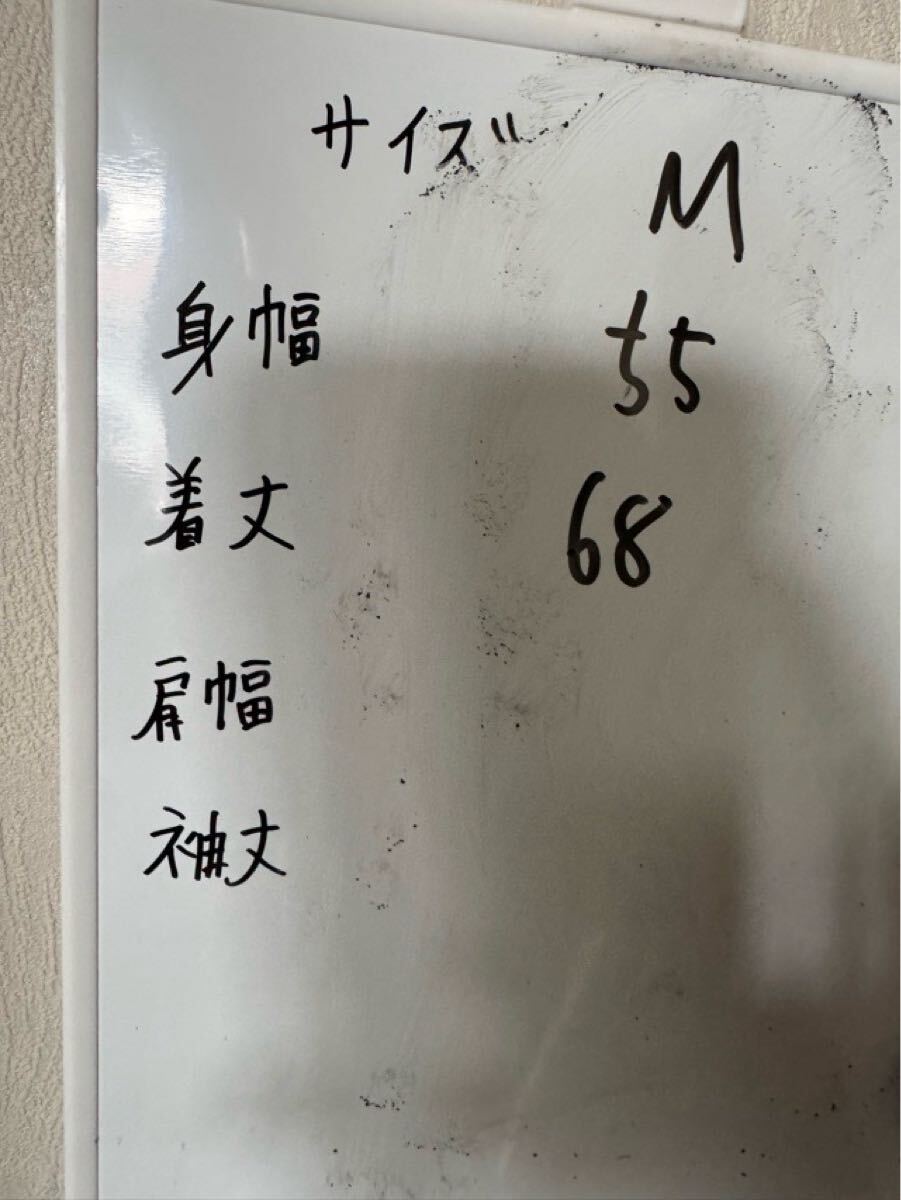 サイズ M
身幅 55
着丈 68
肩幅
袖丈